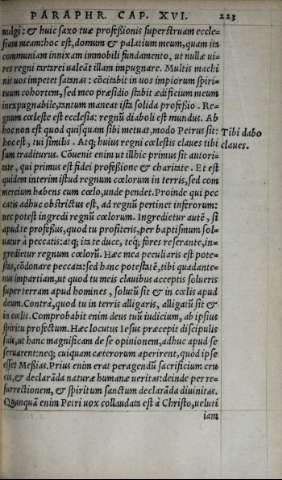 PARAPHR. CAP. XVI. 223
uulgi: & huic saxo tuæ profeßionis superstruam eccle-
siam meam: hoc est, domum & palatium meum, quam ita
communiam innixam immobili fundamento, ut nullæ ui-
res regni tartarei ualeāt illam impugnare. Multis machi
nis uos impetet satanas: cōcitabit in uos impiorum spiri-
tuum cohortem, sed meo præsidio stabit ædificium meum
inexpugnabile, tantum maneat ista solida profeßio. Re-
gnum cœleste est ecclesia: regnū diaboli est mundus. Ab
hoc non est quod quisquam sibi metuat, modo Petrus sit:
hoc est, tui similis. Atq; huius regni cœlestis claues tibi
sum traditurus. Cōuenit enim ut illhic primus sit autori-
tate, qui primus est fidei profeßione & charitate. Et est
quidem interim istud regnum cœlorum in terris, sed com
mercium habens cum cœlo, unde pendet. Proinde qui pec
catis adhuc obstrictus est, ad regnū pertinet inferorum:
nec potest ingredi regnū cœlorum. Ingredietur autē, si
apud te profeßus, quod tu profiteris, per baptismum sol-
uatur à peccatis: atq; ita te duce, teq; fores reserante, in-
gredietur regnum cœlorū. Hæc mea peculiaris est pote-
stas, cōdonare peccata: sed hanc potestatē, tibi quadante-
nus impartiam, ut quod tu meis clauibus acceptis solueris
super terram apud homines, solutū sit & in cœlis apud
deum. Contrà, quod tu in terris alligaris, alligatū sit &
in cœlis. Comprobabit enim deus tuū iudicium, ab ipsius
spiritu profectum. Hæc locutus Iesus præcepit discipulis
suis, ut hanc magnificam de se opinionem, adhuc apud se
seruarent: neq; cuiquam cæterorum aperirent, quòd ipse
esset Meßias. Prius enim erat peragendū sacrificium cru
cis, & declarāda naturæ humanæ ueritas: deinde per re-
surrectionem, & spiritum sanctum declarāda diuinitas.
Quanquā enim Petri uox collaudata est à Christo, ueluti
iam
Tibi dabo
claues.